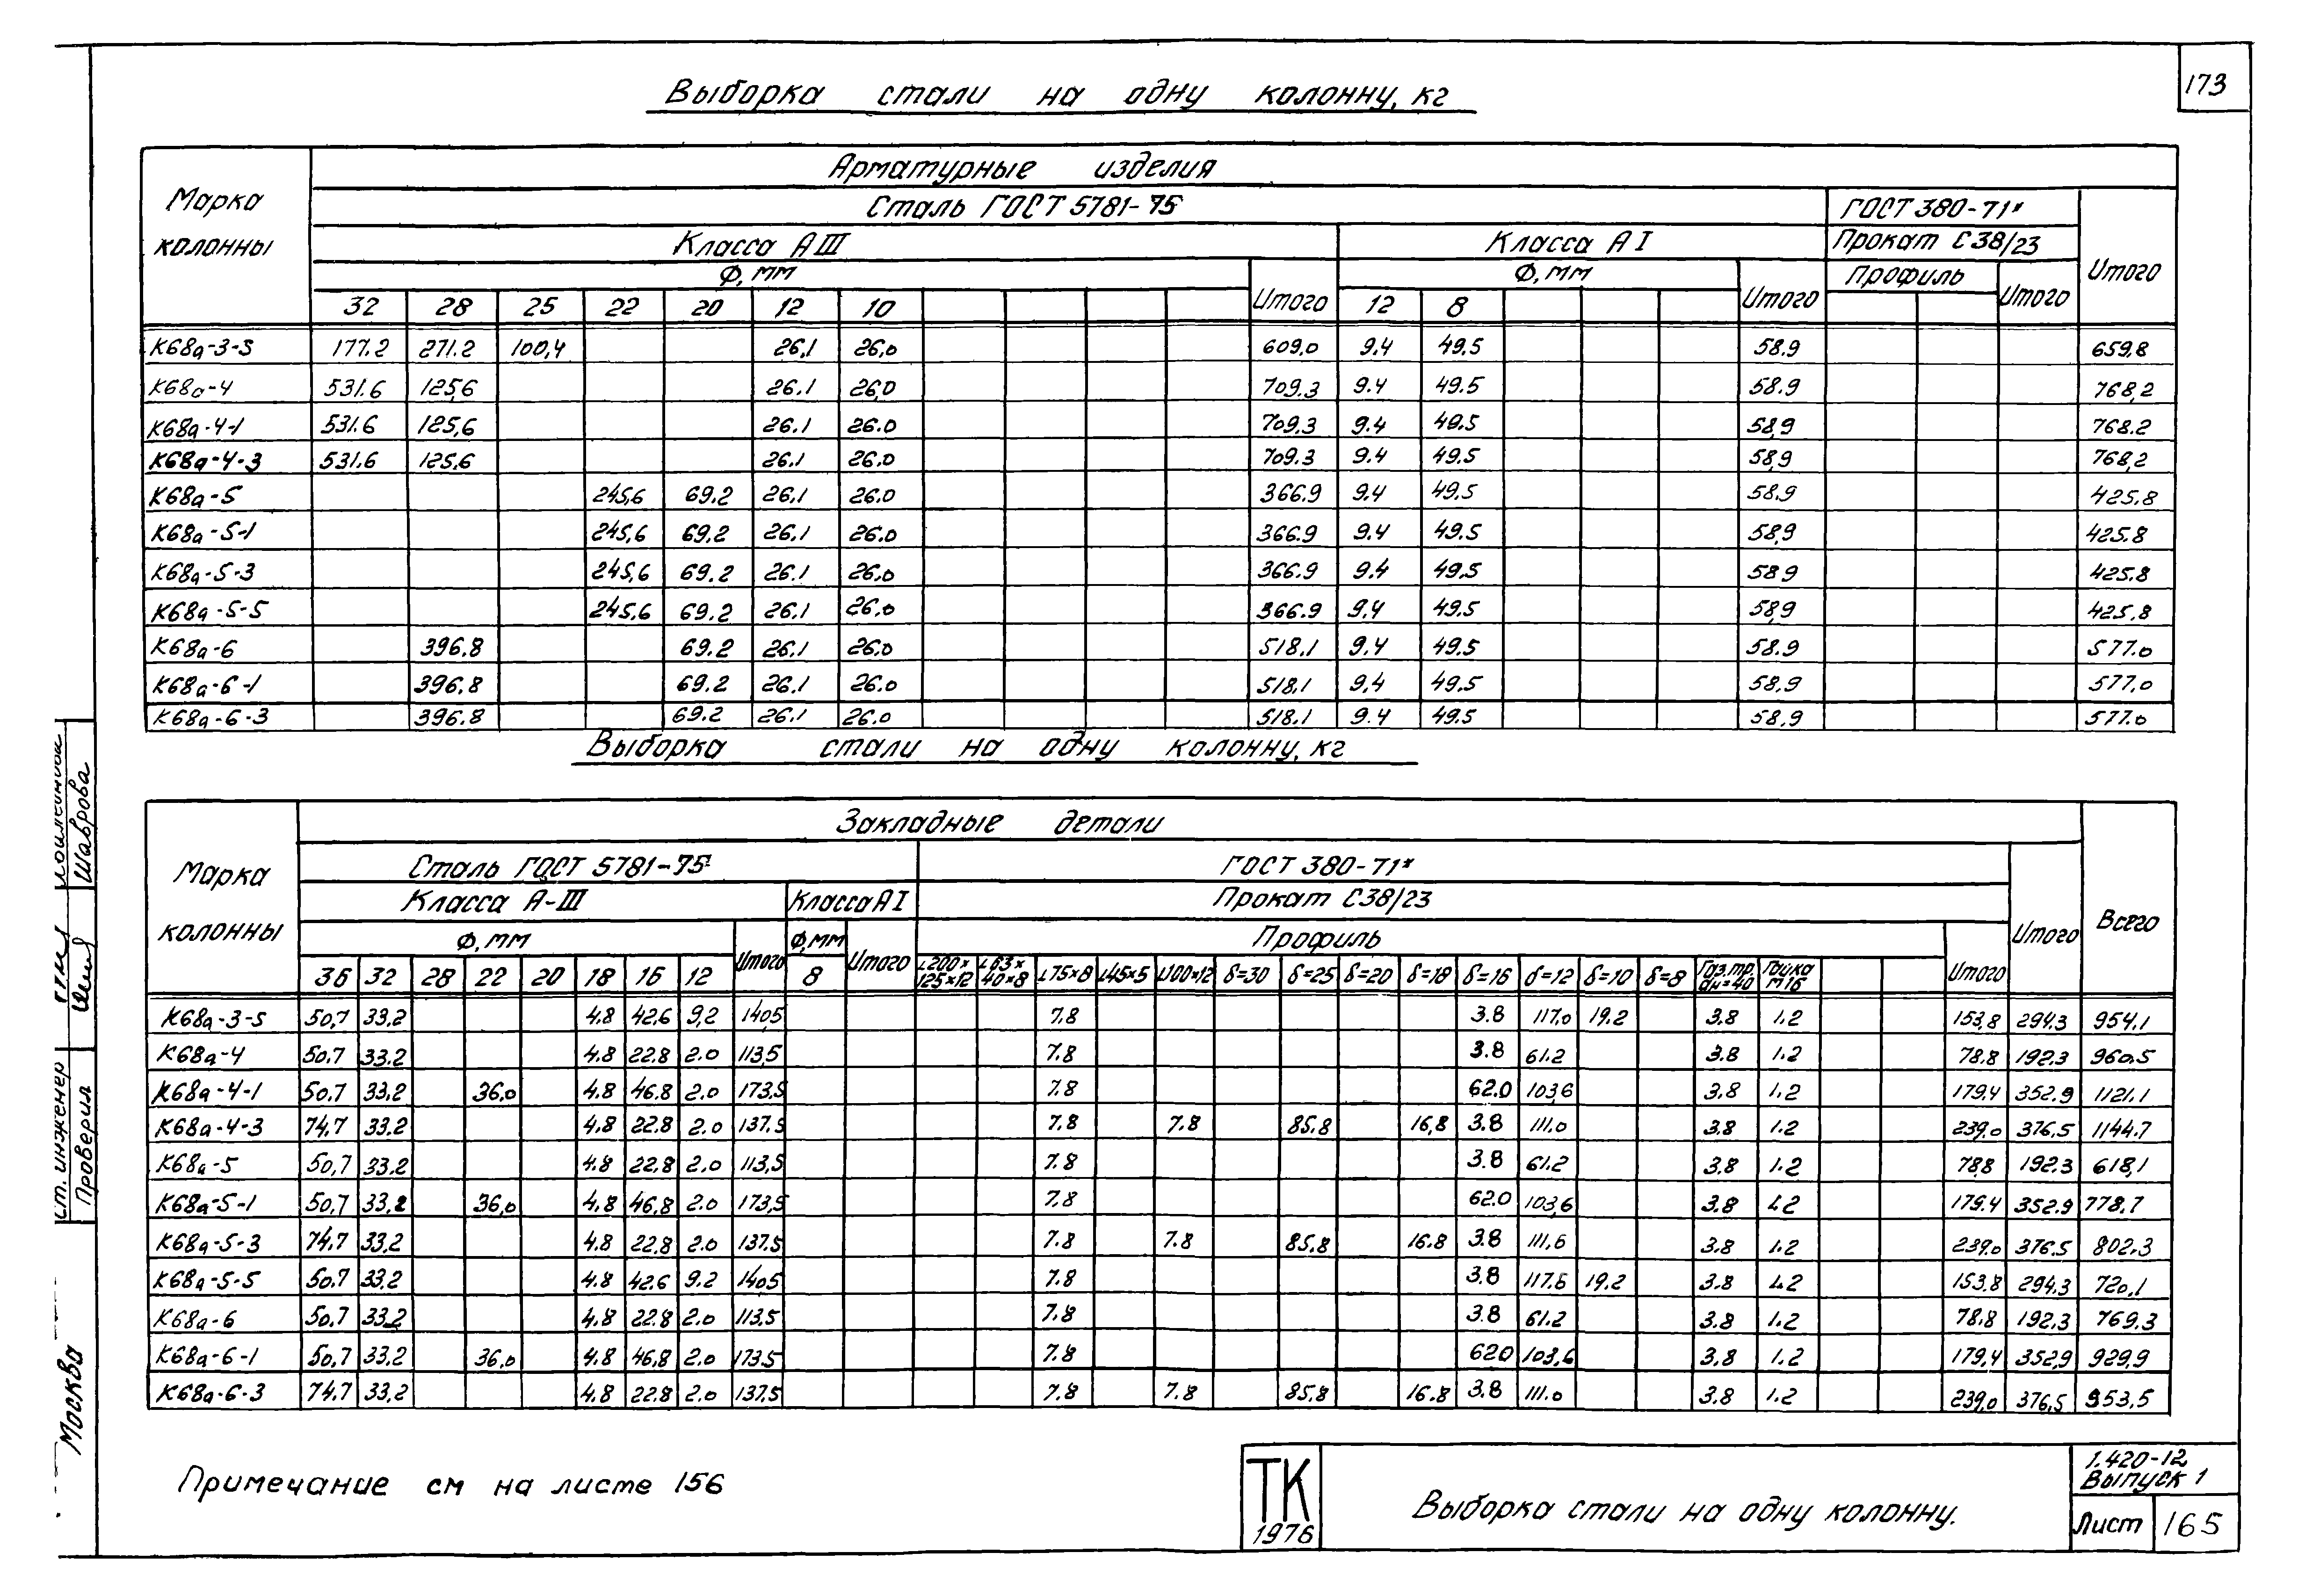 173
Выборка стали на одну колонну, кг
Марка колонны
Арматурные изделия
Сталь ГОСТ 5781-75
ГОСТ 380-71*
Итого
Класса А III
Класса А I
Прокат С38/23
Ф, мм
Итого
Ф, мм
Итого
Профиль
Итого
32 28 25 22 20 12 10 12 8
К68а-3-5 177.2 271.2 100,4 26,1 26,0 609,0 9.4 49.5 58.9 659,8
К68а-4 531.6 125,6 26.1 26,0 709.3 9.4 49.5 58.9 768,2
К68а-4-1 531.6 125,6 26.1 26.0 709.3 9.4 49.5 58,9 768.2
К68а-4-3 531.6 125,6 26.1 26.0 709.3 9.4 49.5 58,9 768,2
К68а-5 245,6 69.2 26,1 26.0 366.9 9.4 49,5 58,9 425.8
К68а-5-1 245,6 69.2 26,1 26.0 366.9 9.4 49.5 58,9 425.8
К68а-5-3 245,6 69.2 26.1 26,0 366.9 9.4 49,5 58 9 425,8
К68а-5-5 245,6 69.2 26,1 26,0 366.9 9,4 49,5 58,9 425,8
К68а-6 396,8 69.2 26,1 26,0 518,1 9.4 49,5 58.9 577.0
К68а-6-1 396,8 69.2 26,1 26.0 518,1 9,4 49,5 58,9 577,0
К68а-6-3 396,8 69,2 26.1 26.0 518.1 9.4 49.5 58,9 577.0
Выборка стали на одну колонну, кг
Марка колонны
Закладные детали
Всего
Сталь ГОСТ 5781-75
ГОСТ 380-71*
Итого
Класса А-III
Класса А I
Прокат С38/23
Ф, мм
Итого
Ф,мм
Итого
Профиль
Итого
36 32 28 22 20 18 16 12 8 ∟200×125×12 ∟63×40×8 ∟75×8 ∟45×5 ∟100×12 δ=30 δ=25 δ=20 δ=18 δ=16 δ=12 δ=10 δ=8 Газ.тр. dн=40 Гайка М16
К68а-3-5 50,7 33.2 4.8 42.6 9,2 140,5 7.8 3.8 117.0 19.2 3.8 1.2 153,8 294.3 954,1
К68а-4 50.7 33.2 4.8 22.8 2.0 113,5 7.8 3.8 61.2 3.8 1.2 78.8 192.3 960,5
К68а-4-1 50,7 33,2 36,0 4.8 46.8 2.0 173,5 7.8 62.0 103,6 3.8 1.2 179.4 352.9 1121,1
К68а-4-3 74,7 33.2 4.8 22.8 2.0 137.5 7.8 7.8 85.8 16,8 3.8 111.0 3.8 1.2 239.0 376,5 1144.7
К68а-5 50,7 33.2 4.8 22.8 2.0 113,5 7.8 3.8 61.2 3.8 1.2 78,8 192.3 618,1
К68а-5-1 50,7 33,2 36,0 4.8 46,8 2.0 173,5 7.8 62.0 103,6 3.8 1.2 179.4 352.9 778.7
К68а-5-3 74.7 33.2 4.8 22.8 2.0 137.5 7.8 7.8 85,8 16.8 3.8 111,6 3.8 1.2 239.0 376.5 802.3
К68а-5-5 50.7 33.2 4.8 42.6 9.2 140,5 7.8 3.8 117.6 19.2 3.8 1.2 153.8 294.3 720,1
К68а-6 50,7 33.2 4.8 22.8 2.0 113,5 7.8 3.8 61.2 3.8 1.2 78,8 192,3 769.3
К68а-6-1 50,7 33.2 36,0 4.8 46,8 2.0 173.5 7.8 620 103,6 3.8 1.2 179,4 352,9 929,9
К68а-6-3 74.7 33.2 4.8 22.8 2.0 137.5 7.8 7.8 85.8 16.8 3.8 111.0 3.8 1.2 239,0 376,5 953,5
Примечание см на листе 156
ТК
1976
Выборка стали на одну колонну.
1.420-12
Выпуск 1
Лист 165
Шаврова
ст. инженер
Проверил
Москва